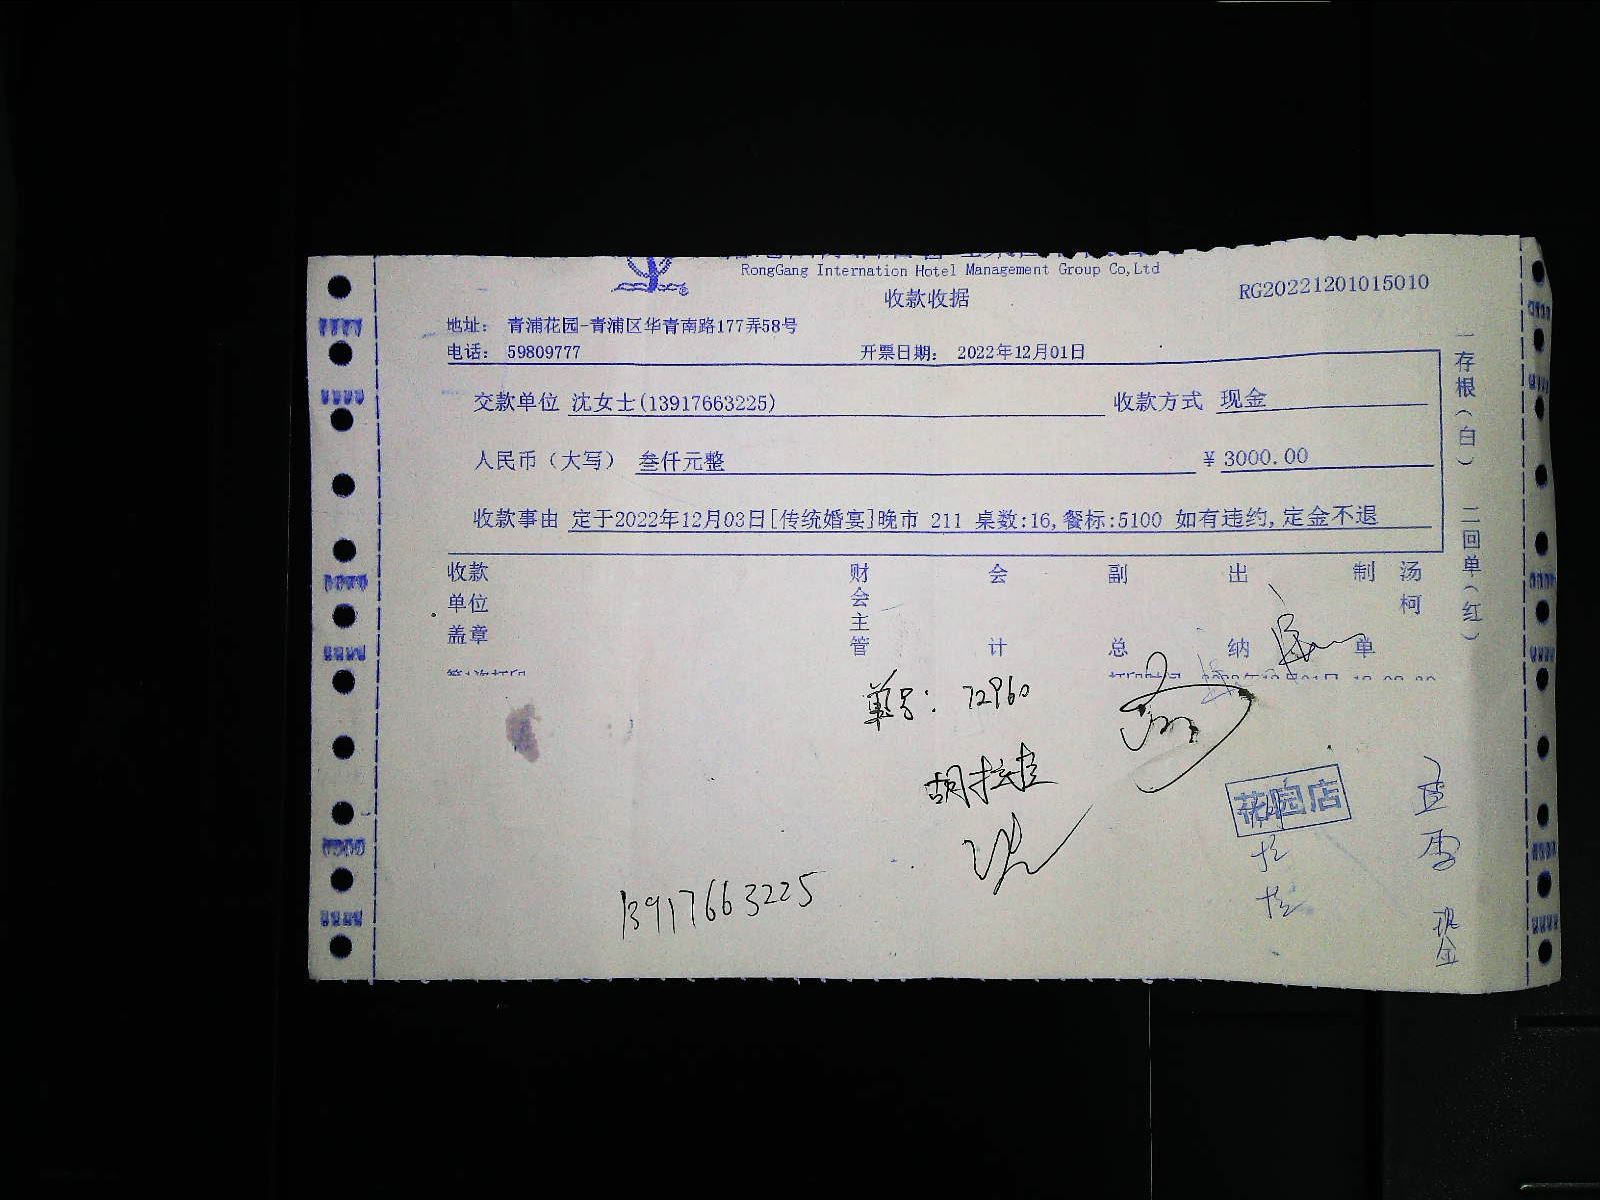 RongGang Internation Hotel Management Group Co,Ltd
收款收据
RG20221201015010
地址： 青浦花园-青浦区华青南路177弄58号
电话： 59809777
开票日期： 2022年12月01日
交款单位 沈女士(13917663225)
收款方式 现金
人民币（大写） 叁仟元整
¥ 3000.00
收款事由 定于2022年12月03日[传统婚宴]晚市 211 桌数:16,餐标:5100 如有违约,定金不退
一存根（白） 二回单（红）
收款单位盖章
财会主管
会计
副总
出纳
制单
汤柯
单号：72960
花园店
13917663225
现金